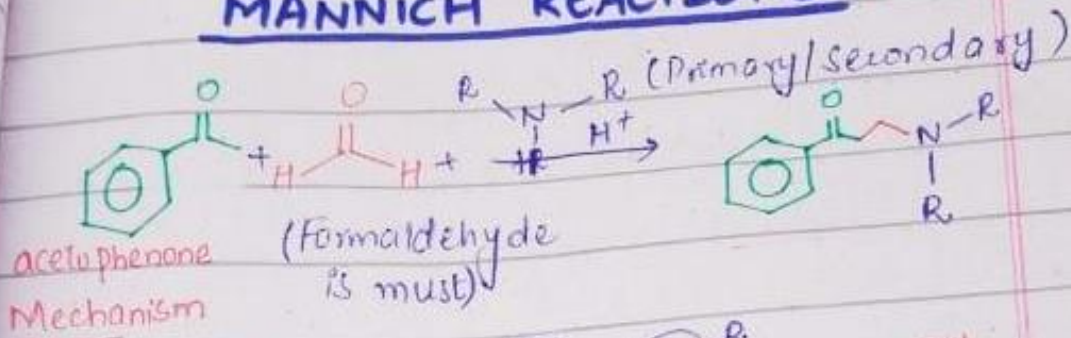 MANNICH REACTION
O O R N R (Primary/Secondary) O
+ H H + H H+ N R
R
acetophenone (Formaldehyde
is must)
Mechanism
R